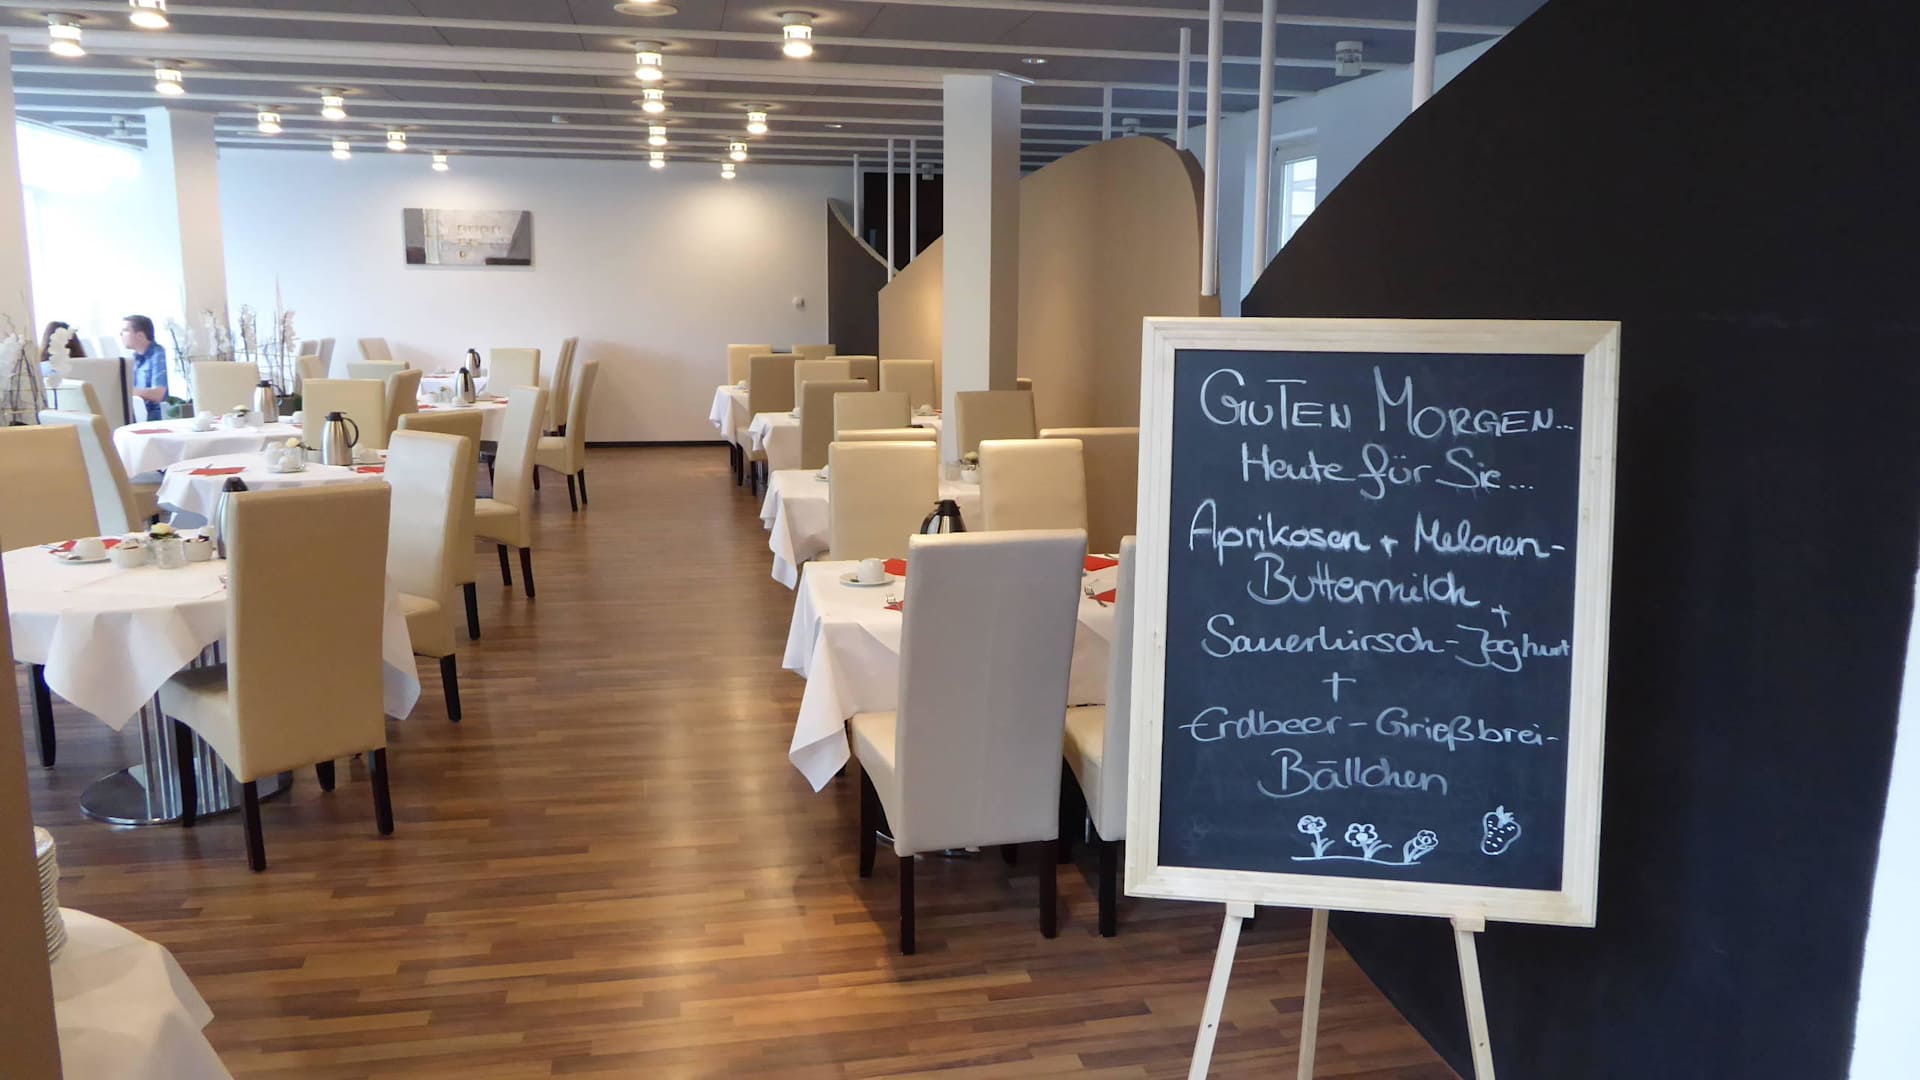 GUTEN MORGEN...
Heute für Sie...
Aprikosen + Melonen-
Buttermilch
+
Sauerkirsch-Joghurt
+
Erdbeer-Grießbrei-
Bällchen